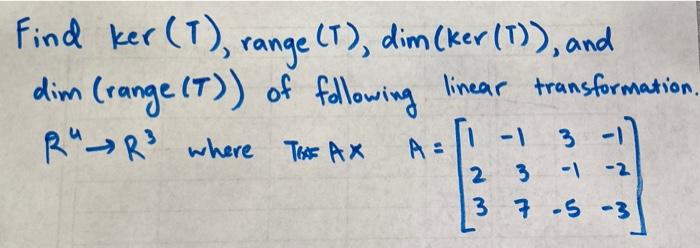 Find ker (T), range (T), dim (ker (T)), and
dim (range (T)) of following linear transformation.
R⁴ → R³ where Ax A = [1 -1 3 -1
2 3 -1 -2
3 7 -5 -3]